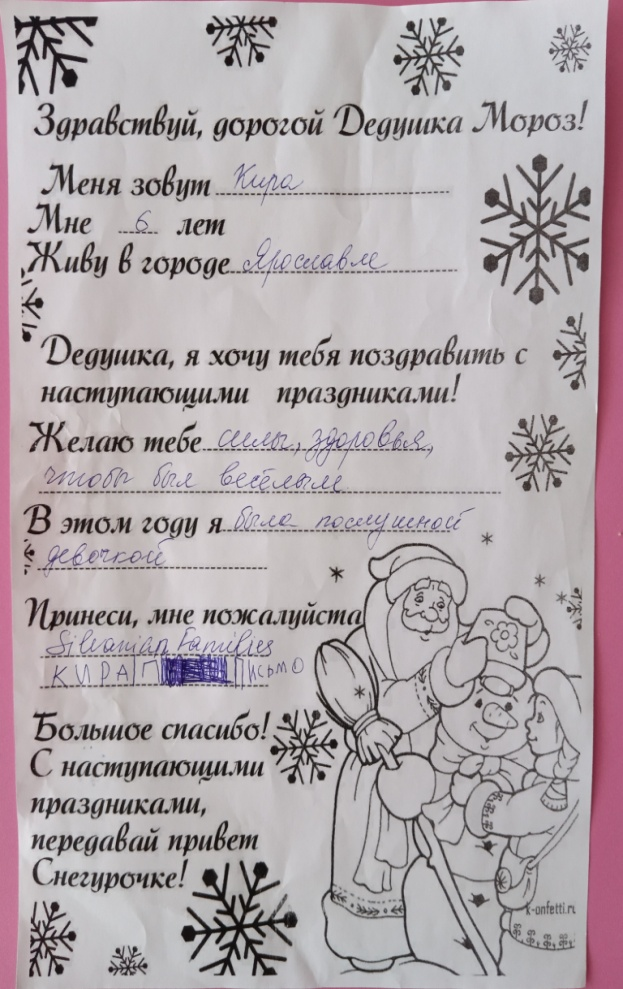 Здравствуй, дорогой Дедушка Мороз!
Меня зовут Кира
Мне 6 лет
Живу в городе Ярославле
Дедушка, я хочу тебя поздравить с
наступающими праздниками!
Желаю тебе силы, здоровья,
чтобы был весёлым
В этом году я была послушной
девочкой
Принеси, мне пожалуйста
Silvanian Families
КИРА П ПИСЬМО
Большое спасибо!
С наступающими
праздниками,
передавай привет
Снегурочке!
k-onfetti.ru